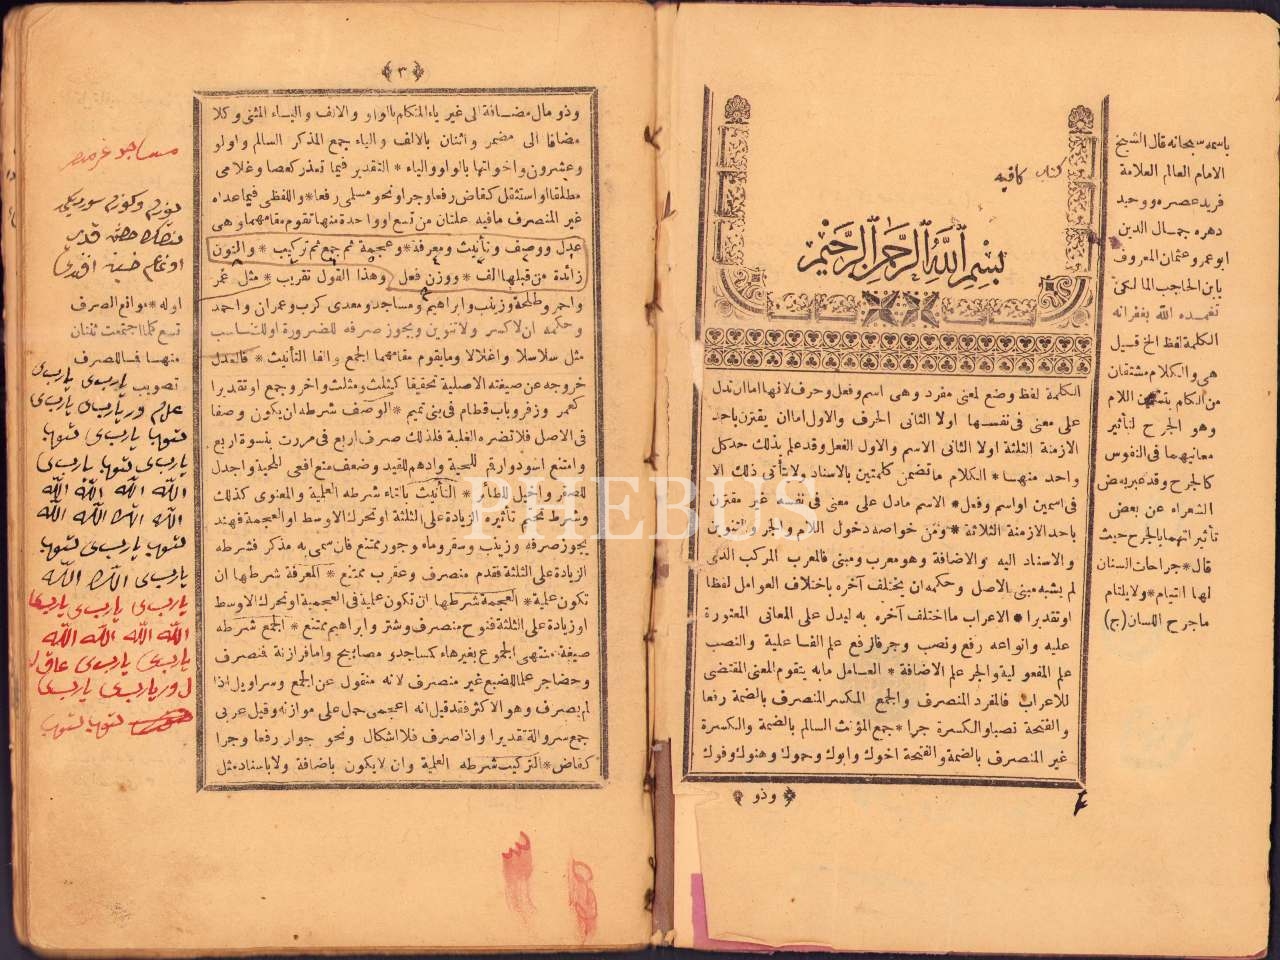 كتاب كافيه
بسم الله الرحمن الرحيم
الكلمة لفظ وضع لمعنى مفرد وهى اسم وفعل وحرف لانها اما ان تدل
على معنى فى نفسها اولا الثانى الحرف والاول اما ان يقترن باحد
الازمنة الثلثة اولا الثانى الاسم والاول الفعل وقد علم بذلك حد كل
واحد منهما * الكلام ما تضمن كلمتين بالاسناد ولا يتأتى ذلك الا
فى اسمين او اسم وفعل * الاسم مادل على معنى فى نفسه غير مقترن
باحد الازمنة الثلاثة * ومن خواصه دخول اللام والجر والتنوين
والاسناد اليه والاضافة وهو معرب ومبنى فالمعرب المركب الذى
لم يشبه مبنى الاصل وحكمه ان يختلف آخره باختلاف العوامل لفظا
او تقديرا * الاعراب ما اختلف آخره به ليدل على المعانى المعتورة
عليه وانواعه رفع ونصب وجر فالرفع علم الفاعلية والنصب
علم المفعولية والجر علم الاضافة * العامل مابه يتقوم المعنى المقتضى
للاعراب فالمفرد المنصرف والجمع المكسر المنصرف بالضمة رفعا
والفتحة نصبا والكسرة جرا * جمع المؤنث السالم بالضمة والكسرة
غير المنصرف بالضمة والفتحة اخوك وابوك وحموك وهنوك وفوك
وذو
باسمه سبحانه قال الشيخ
الامام العالم العلامة
فريد عصره ووحيد
دهره جمال الدين
ابو عمرو عثمان المعروف
بابن الحاجب المالكى
تغمده الله بغفرانه
الكلمة لفظ الخ قيل
هى والكلام مشتقان
من الكلم بتسكين اللام
وهو الجرح لتأثير
معانيهما فى النفوس
كالجرح وقد عبر بعض
الشعراء عن بعض
تأثيراتهما بالجرح حيث
قال * جراحات السنان
لها التيام * ولا يلتام
ماجرح اللسان (ج)
٣
وذو مال مضافة الى غير ياء المتكلم بالواو والالف والياء المثنى وكلا
مضافا الى مضمر واثنان بالالف والياء جمع المذكر السالم واولو
وعشرون واخواتها بالواو والياء * التقدير فيما تعذر كعصا وغلامى
مطلقا او استثقل كقاض رفعا وجرا ونحو مسلمى رفعا * واللفظى فيما عداه
غير المنصرف مافيه علتان من تسع او واحدة منها تقوم مقامهما وهى
عدل ووصف وتأنيث ومعرفة * وعجمة ثم جمع ثم تركيب * والنون
زائدة من قبلها الف * ووزن فعل وهذا القول تقريب * مثل عمر
واحمر وطلحة وزينب وابراهيم ومساجد ومعدى كرب وعمران واحمد
وحكمه ان لا كسر ولا تنوين ويجوز صرفه للضرورة او للتناسب
مثل سلاسلا واغلالا وما يقوم مقامهما الجمع والفا التأنيث * فالعدل
خروجه عن صيغته الاصلية تحقيقا كثلث ومثلث واخر وجمع او تقديرا
كعمر وزفر وباب قطام فى بنى تميم * الوصف شرطه ان يكون وصفا
فى الاصل فلا تضره الغلبة فلذلك صرف اربع فى مررت بنسوة اربع
وامتنع اسود وارقم للحية وادهم للقيد وضعف منع افعى للحية واجدل
للصقر واخيل للطائر * التأنيث بالتاء شرطه العلمية والمعنوى كذلك
وشرط تحتم تأثيره الزيادة على الثلثة او تحرك الاوسط او العجمة فهند
يجوز صرفه وزينب وسقر وماه وجور ممتنع فان سمى به مذكر فشرطه
الزيادة على الثلثة فقدم منصرف وعقرب ممتنع * المعرفة شرطها ان
تكون علمية * العجمة شرطها ان تكون علمية فى العجمية او تحرك الاوسط
او زيادة على الثلثة فنوح منصرف وشتر وابراهيم ممتنع * الجمع شرطه
صيغة منتهى الجموع بغير هاء كمساجد ومصابيح واما فرازنة فنصرف
وحضاجر علما للضبع غير منصرف لانه منقول عن الجمع وسراويل اذا
لم يصرف وهو الاكثر فقد قيل انه اعجمى حمل على موازنه وقيل عربى
جمع سروالة تقديرا واذا صرف فلا اشكال ونحو جوار رفعا وجرا
كقاض * التركيب شرطه العلمية وان لا يكون باضافة ولا باسناد مثل
اوله * موانع الصرف
تسع كلما اجتمعت ثنتان
منهما فما للصرف
تصويب
يارب يارب
الله الله الله الله
الله الله الله الله
PHEBUS